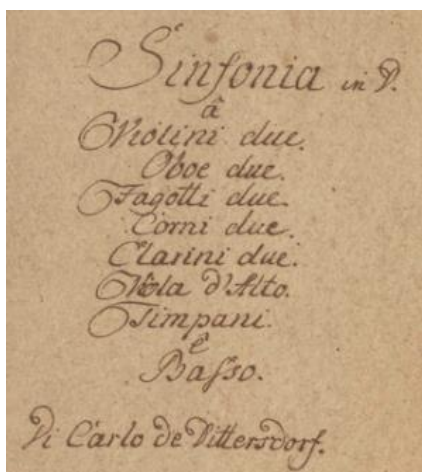 Sinfonia in D.
â
Violini due.
Oboe due.
Fagotti due.
Corni due.
Clarini due.
Viola d'Alto.
Timpani.
ê
Basso.
Di Carlo de Dittersdorf.